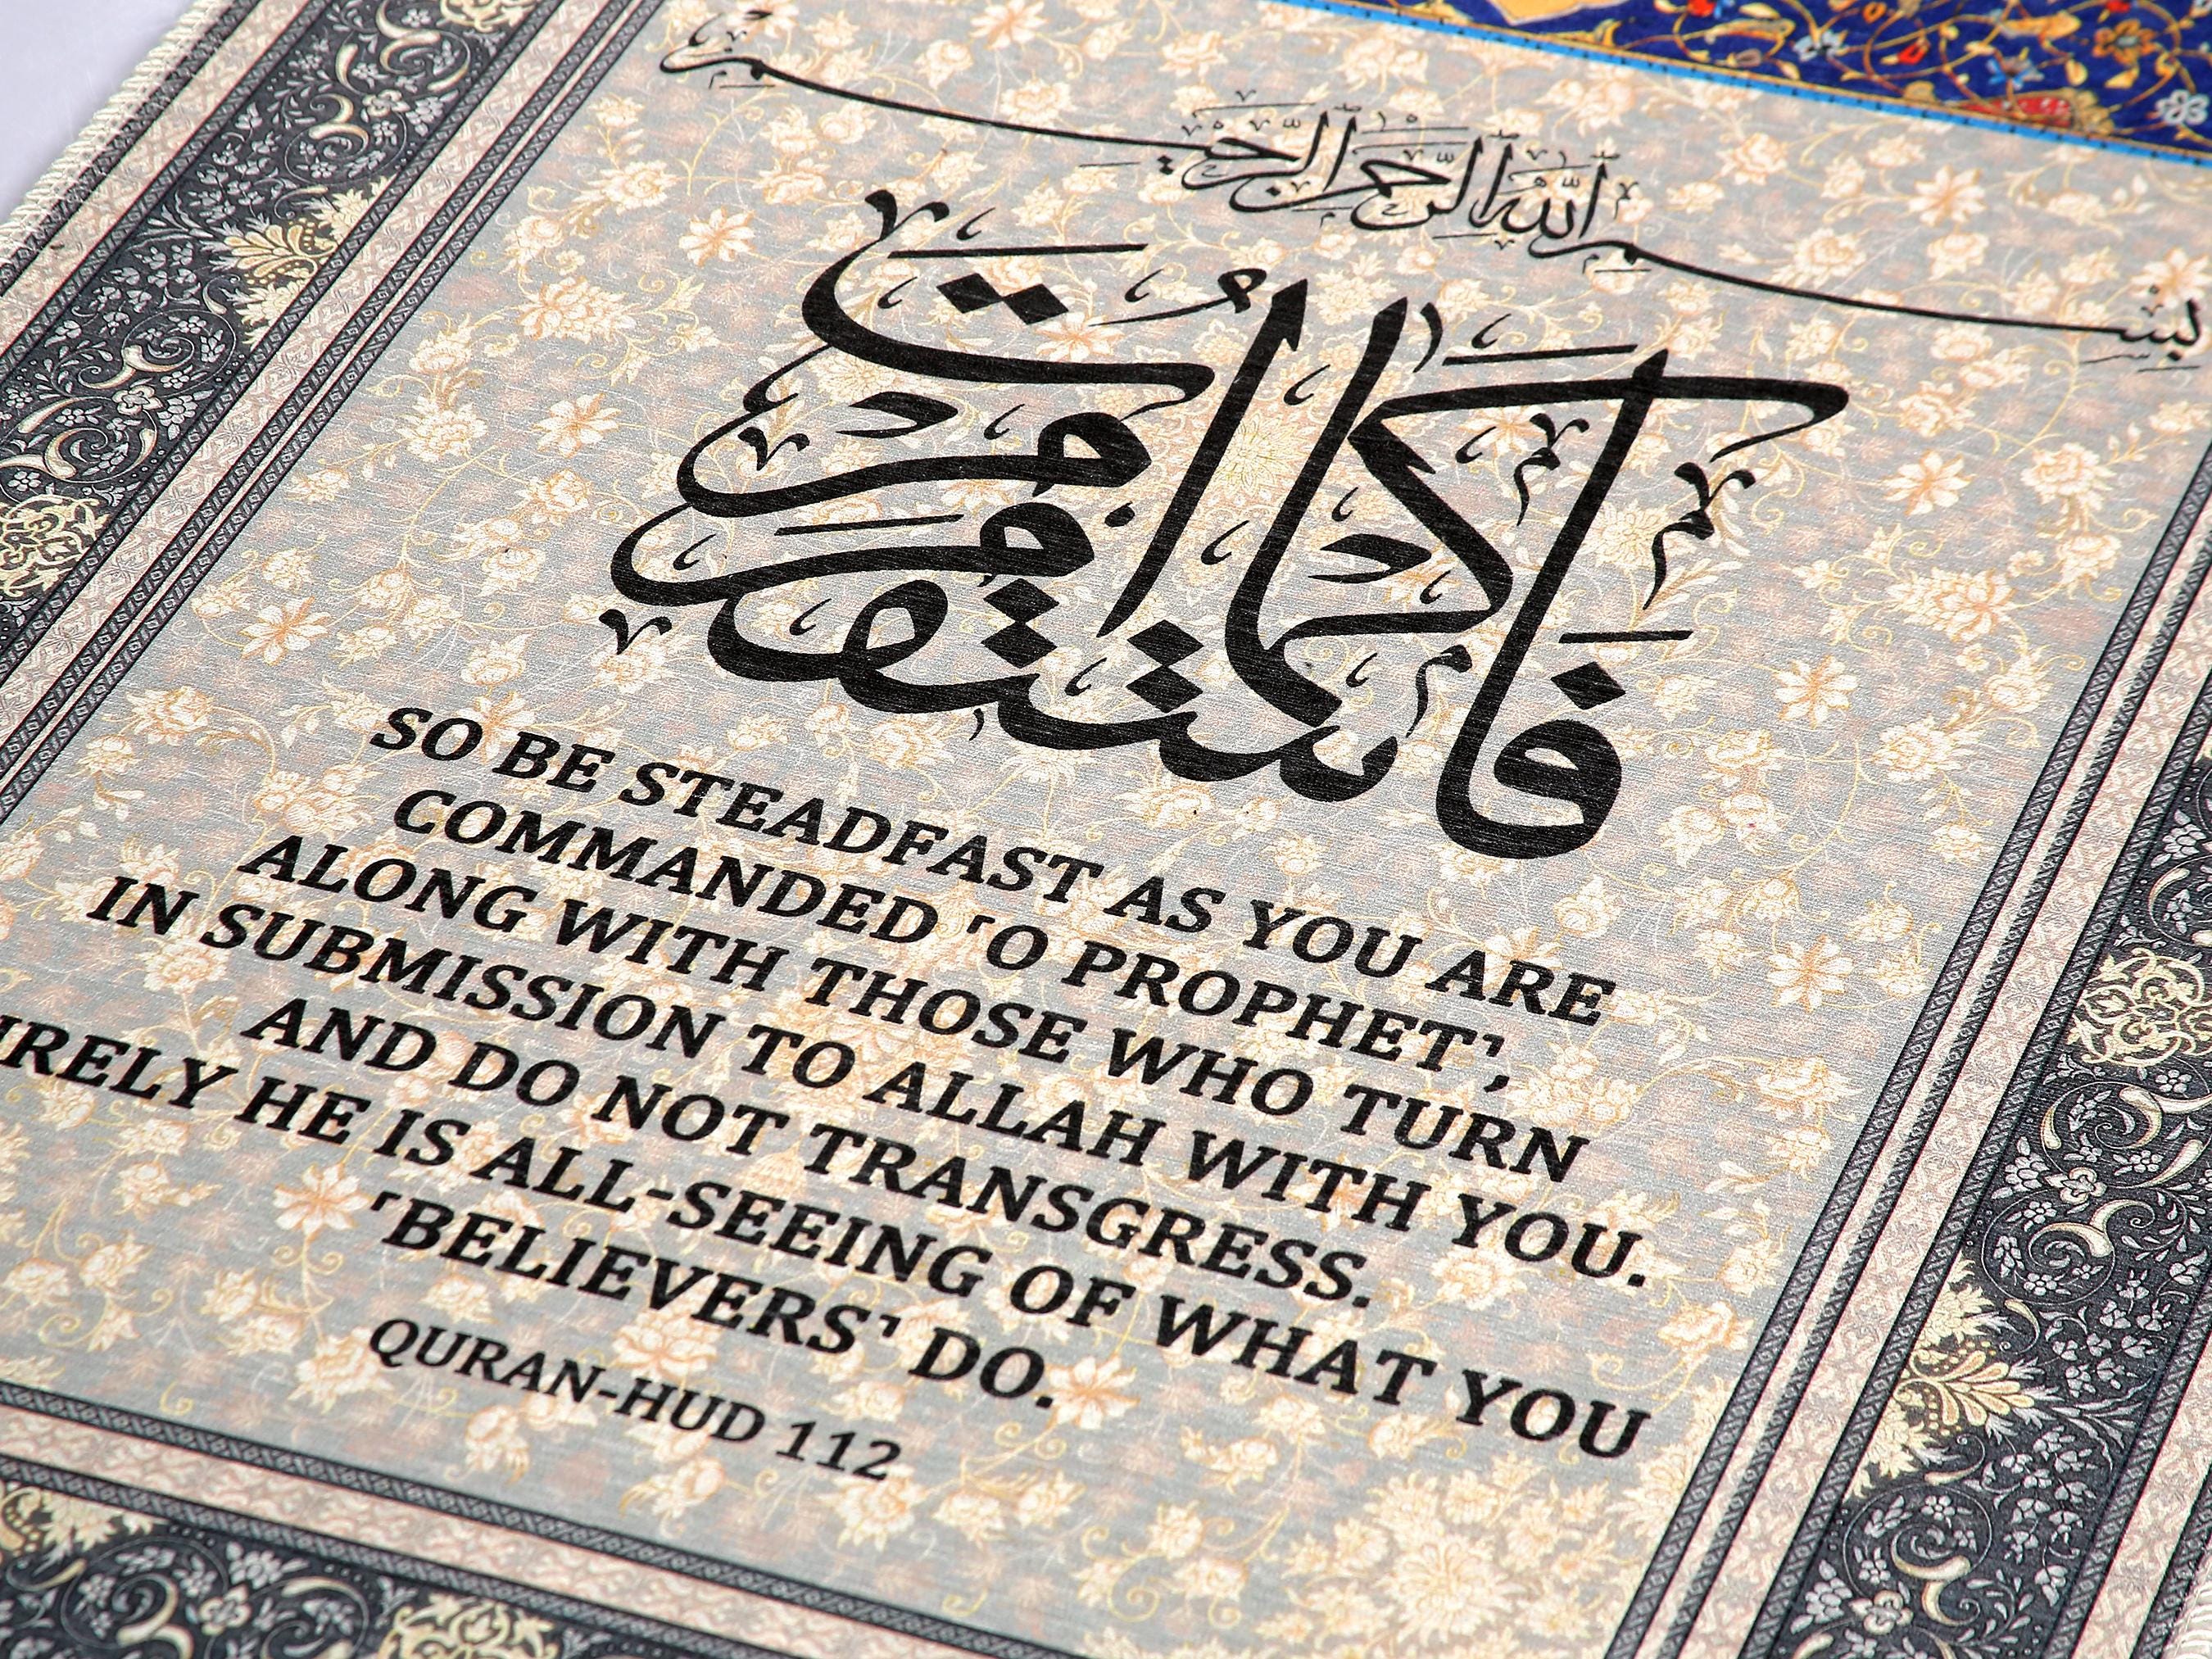 بِسْمِ اللَّهِ الرَّحْمَٰنِ الرَّحِيمِ
فَاسْتَقِمْ كَمَا أُمِرْتَ
SO BE STEADFAST AS YOU ARE
COMMANDED ˹O PROPHET˺,
ALONG WITH THOSE WHO TURN
IN SUBMISSION TO ALLAH WITH YOU.
AND DO NOT TRANSGRESS.
URELY HE IS ALL-SEEING OF WHAT YOU
˹BELIEVERS˺ DO.
QURAN-HUD 112